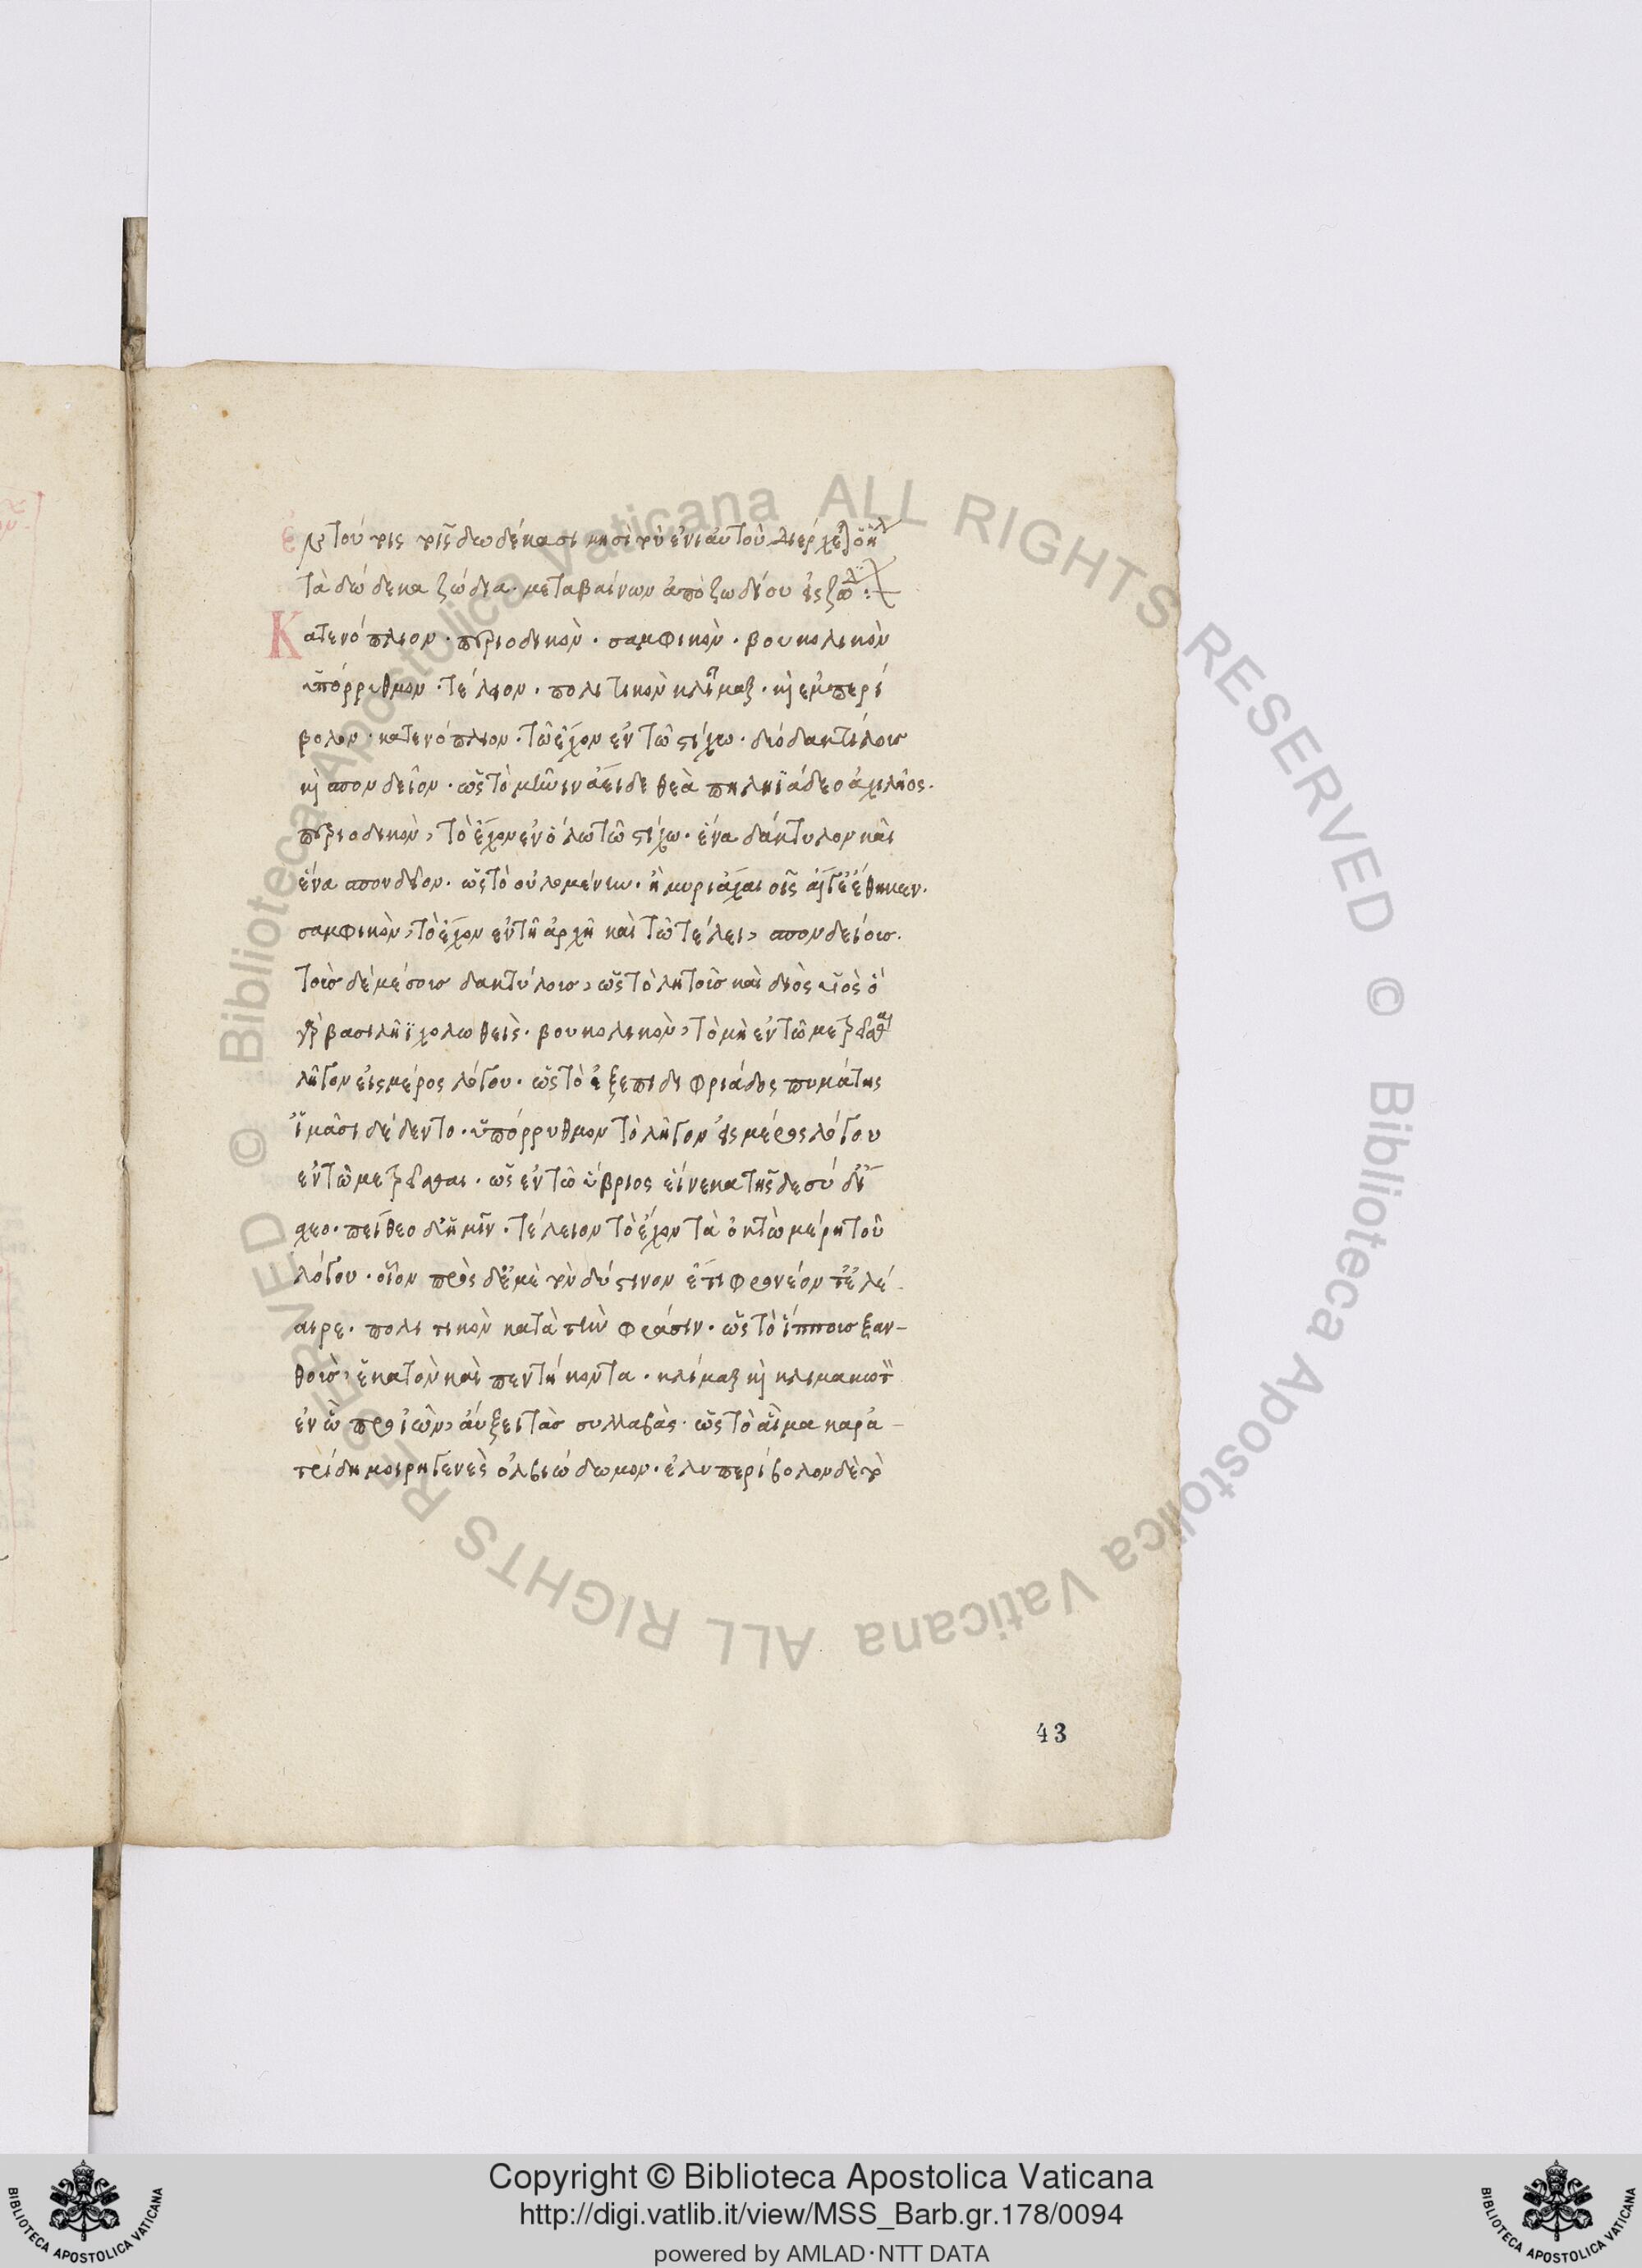 ἐν τούτοις τοῖς δωδέκασι μησὶ τὸν ἐνιαυτοῦ διέρχεται ὁ ἥλ
τὰ δώδεκα ζώδια· μεταβαίνων ἀπὸ ζωδίου εἰς ζώδ
Κατενόπλιον· περιοδικὸν· σαμφικὸν· βουκολικὸν
ὑπόρρυθμον· τέλειον· πολιτικὸν κλίμαξ· καὶ ἐμπερί
βολον· κατενόπλιον· τὼ ἔχον ἐν τῶ στίχω· δύο δακτύλοις
καὶ σπονδεῖον· ὡς τὸ μῆνιν ἄειδε θεὰ πηληϊάδεο ἀχιλῆος.
περιοδικὸν, τὸ ἔχον ἐν ὅλω τῶ στίχω· ἕνα δάκτυλον καὶ
ἕνα σπονδεῖον· ὡς τὸ οὐλομένην· ἣ μυρι ἀχαιοῖς ἄλγε ἔθηκεν.
σαμφικὸν, τὸ ἔχον ἐν τῆ ἀρχῆ καὶ τῶ τέλει, σπονδείοις.
τοῖς δὲ μέσοις δακτύλοις, ὡς τὸ λητοῖς καὶ διὸς υἱὸς ὁ
γὰρ βασιλῆϊ χολωθεὶς· βουκολικὸν, τὸ μὴ ἐν τῶ μετρεῖσθαι
λῆγον εἰς μέρος λόγου· ὡς τὸ ἐξεπιδιφριάδος πυμάτης
ἵμᾶσι δέδεντο· ὑπόρρυθμον τὸ λῆγον εἰς μέρος λόγου
ἐν τῶ μετρεῖσθαι· ὡς ἐν τῶ ὕβριος εἵνεκα τῆς δε σύ δ ἴ
χεο· πείθεο δ ἡμῖν· τέλειον τὸ ἔχον τὰ ὀκτὼ μέρη τοῦ
λόγου· οἷον πρὸς δέ με τὸν δύστινον ἔτι φρονέον τ ἐλέ
αιρε· πολιτικὸν κατὰ τὴν φράσιν· ὡς τὸ ἵπποισ ξαν-
θοισ, ἑκατὸν καὶ πεντήκοντα· κλίμαξ καὶ κλιμακωτ
ἐν ὧ προϊὼν, αὔξει τὰσ συλλαβὰς· ὡς τὸ ὦ μάκαρ ἀ-
τρείδη μοιρηγενὲς ὀλβιώδωμον· ἐμπερίβολον δὲ τὸ
43
Copyright © Biblioteca Apostolica Vaticana
http://digi.vatlib.it/view/MSS_Barb.gr.178/0094
powered by AMLAD·NTT DATA
BIBLIOTECA APOSTOLICA VATICANA
BIBLIOTECA APOSTOLICA VATICANA
© Biblioteca Apostolica Vaticana ALL RIGHTS RESERVED © Biblioteca Apostolica Vaticana ALL RIGHTS RESERVED